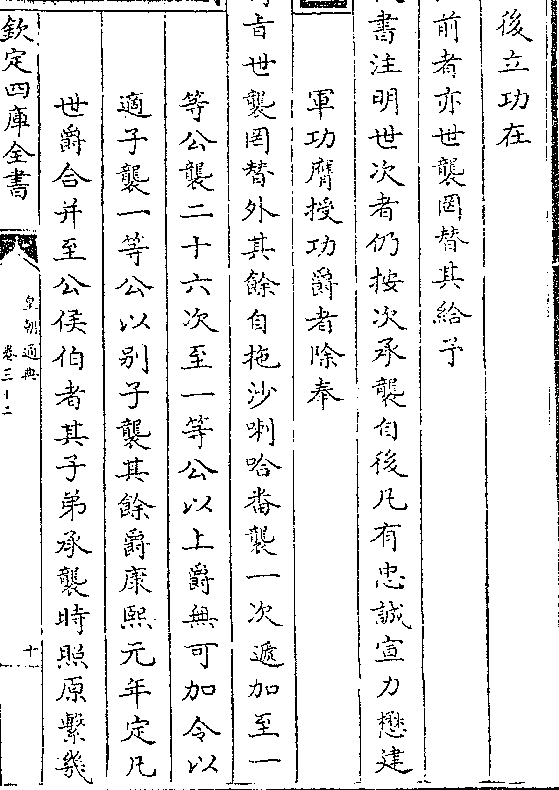 後立功在
前者亦世襲罔替其給予
書注明世次者仍按次承襲自後凡有忠誠宣力懋建
軍功膺授功爵者除奉
旨世襲罔替外其餘自拖沙喇哈番襲一次遞加至一
等公襲二十六次至一等公以上爵無可加令以
適子襲一等公以别子襲其餘爵康熙元年定凡
世爵合并至公侯伯者其子弟承襲時照原繫幾
欽定四庫全書
皇朝通典
卷三十二
十